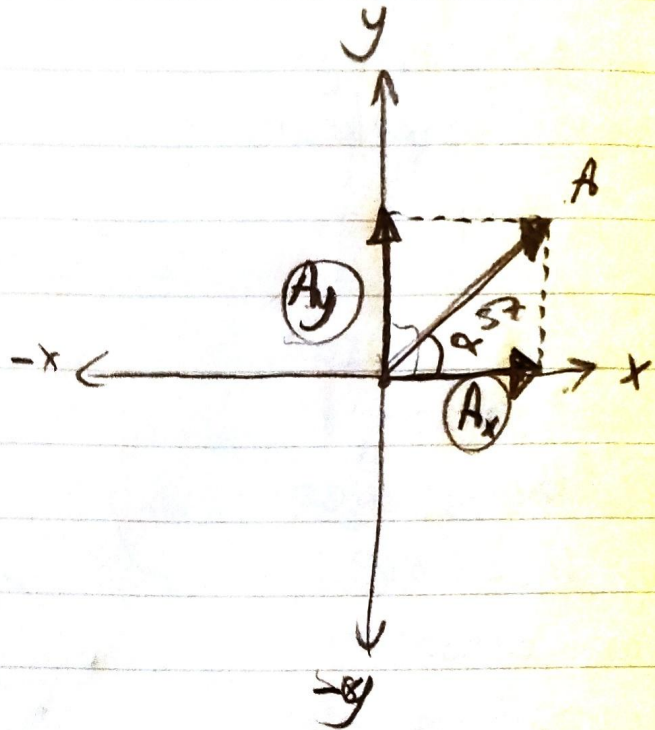 y
A
Ay
α 57
-x
x
Ax
-y